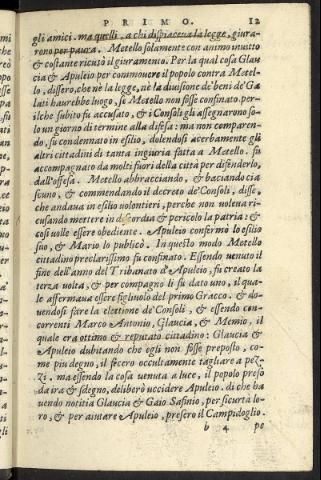 PRIMO. 12
gli amici. ma quelli, a chi dispiaceva la legge, giura-
rono per paura. Metello solamente con animo invitto
& costante ricusò il giuramento. Per la qual cosa Glau
cia & Apuleio per commouere il popolo contra Metel-
lo, dissero, che nè la legge, nè la diuisione de' beni de' Ga
lati haurebbe luogo, se Metello non fosse confinato. per-
ilche subito fu accusato, & i Consoli gli assegnarono so-
lo un giorno di termine alla difesa: ma non comparen-
do, fu condennato in esilio, dolendosi acerbamente gli
altri cittadini di tanta ingiuria fatta a Metello. fu
accompagnato da molti fuori della città per difenderlo,
dall'offesa. Metello abbracciando, & baciando cia
scuno, & commendando il decreto de' Consoli, disse,
che andaua in esilio volontieri, perche non voleua ri-
cusando mettere in discordia & pericolo la patria: &
così volle essere obediente. Apuleio confermò lo esilio
suo, & Mario lo publicò. In questo modo Metello
cittadino preclarissimo fu confinato. Essendo venuto il
fine dell'anno del Tribunato d'Apuleio, fu creato la
terza volta, & per compagno li fu dato uno, il qua-
le affermaua essere figliuolo del primo Gracco. & do-
uendosi fare la elettione de' Consoli, & essendo con-
correnti Marco Antonio, Glaucia, & Memio, il
quale era ottimo & reputato cittadino: Glaucia &
Apuleio dubitando che egli non fosse preposto, co-
me piu degno, il fecero occultamente tagliare a pez-
zi. ma essendo la cosa venuta a luce, il popolo preso
da ira & sdegno, deliberò uccidere Apuleio. di che ha
uendo notitia Glaucia & Gaio Safinio, per sicurtà lo-
ro, & per aiutare Apuleio, presero il Campidoglio.
b 4 po